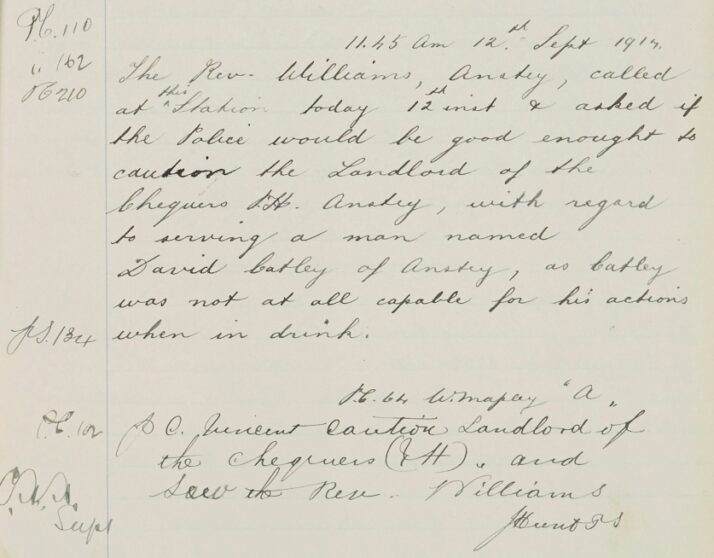 P.C. 110
" 162
PC 210
11.45 Am 12.th Sept 1914.
The Rev. Williams, Anstey, called
at this Station today 12th inst & asked if
the Police would be good enought to
caution the Landlord of the
Chequers P.H. Anstey, with regard
to serving a man named
David Catley of Anstey, as Catley
was not at all capable for his actions
when in drink.
PS. 134
P.C. 64 "A"
P.C. 102
P C. Vincent caution Landlord of
the Chequers (P H) " and
saw the Rev. Williams
Supt
Hunt PS